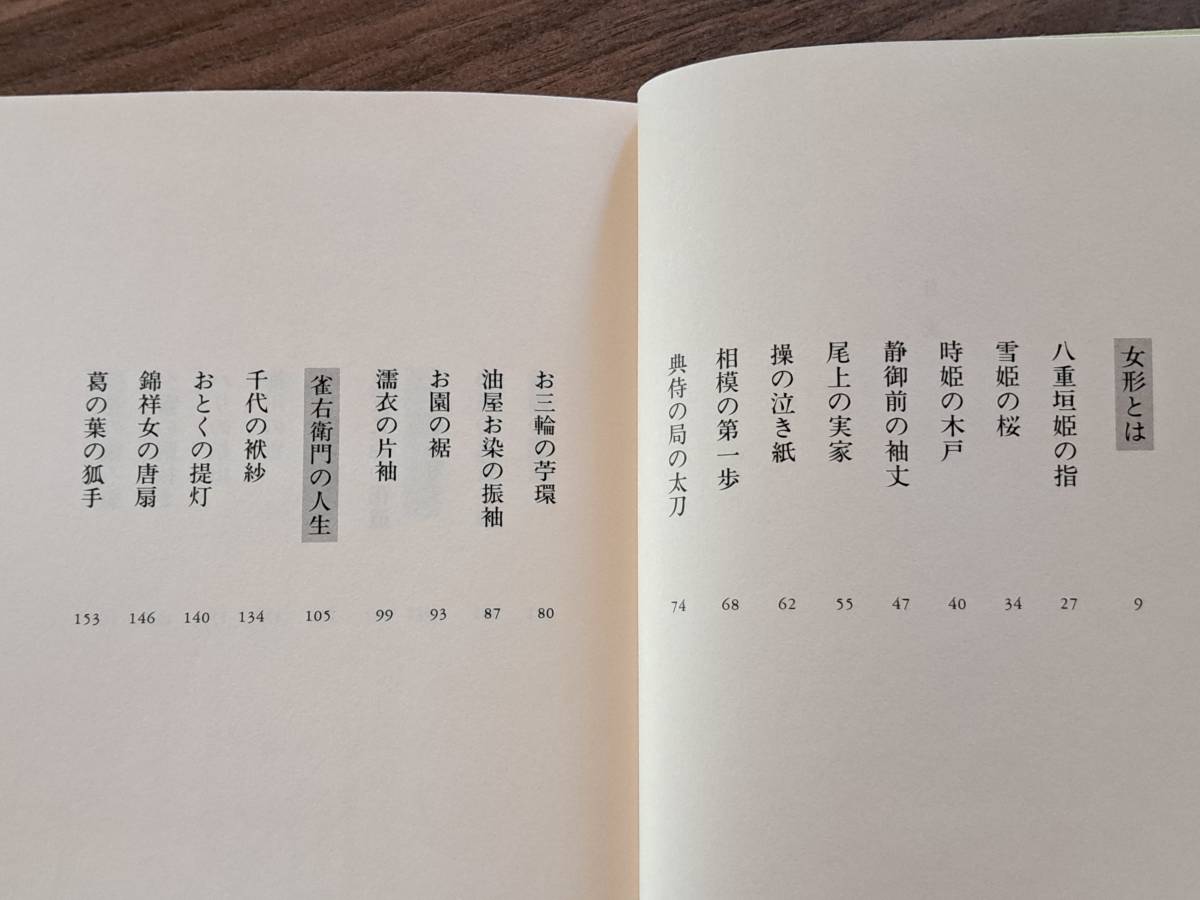 女形とは 9
八重垣姫の指 27
雪姫の桜 34
時姫の木戸 40
静御前の袖丈 47
尾上の実家 55
操の泣き紙 62
相模の第一歩 68
典侍の局の太刀 74
お三輪の苧環 80
油屋お染の振袖 87
お園の裾 93
濡衣の片袖 99
雀右衛門の人生 105
千代の袱紗 134
おとくの提灯 140
錦祥女の唐扇 146
葛の葉の狐手 153